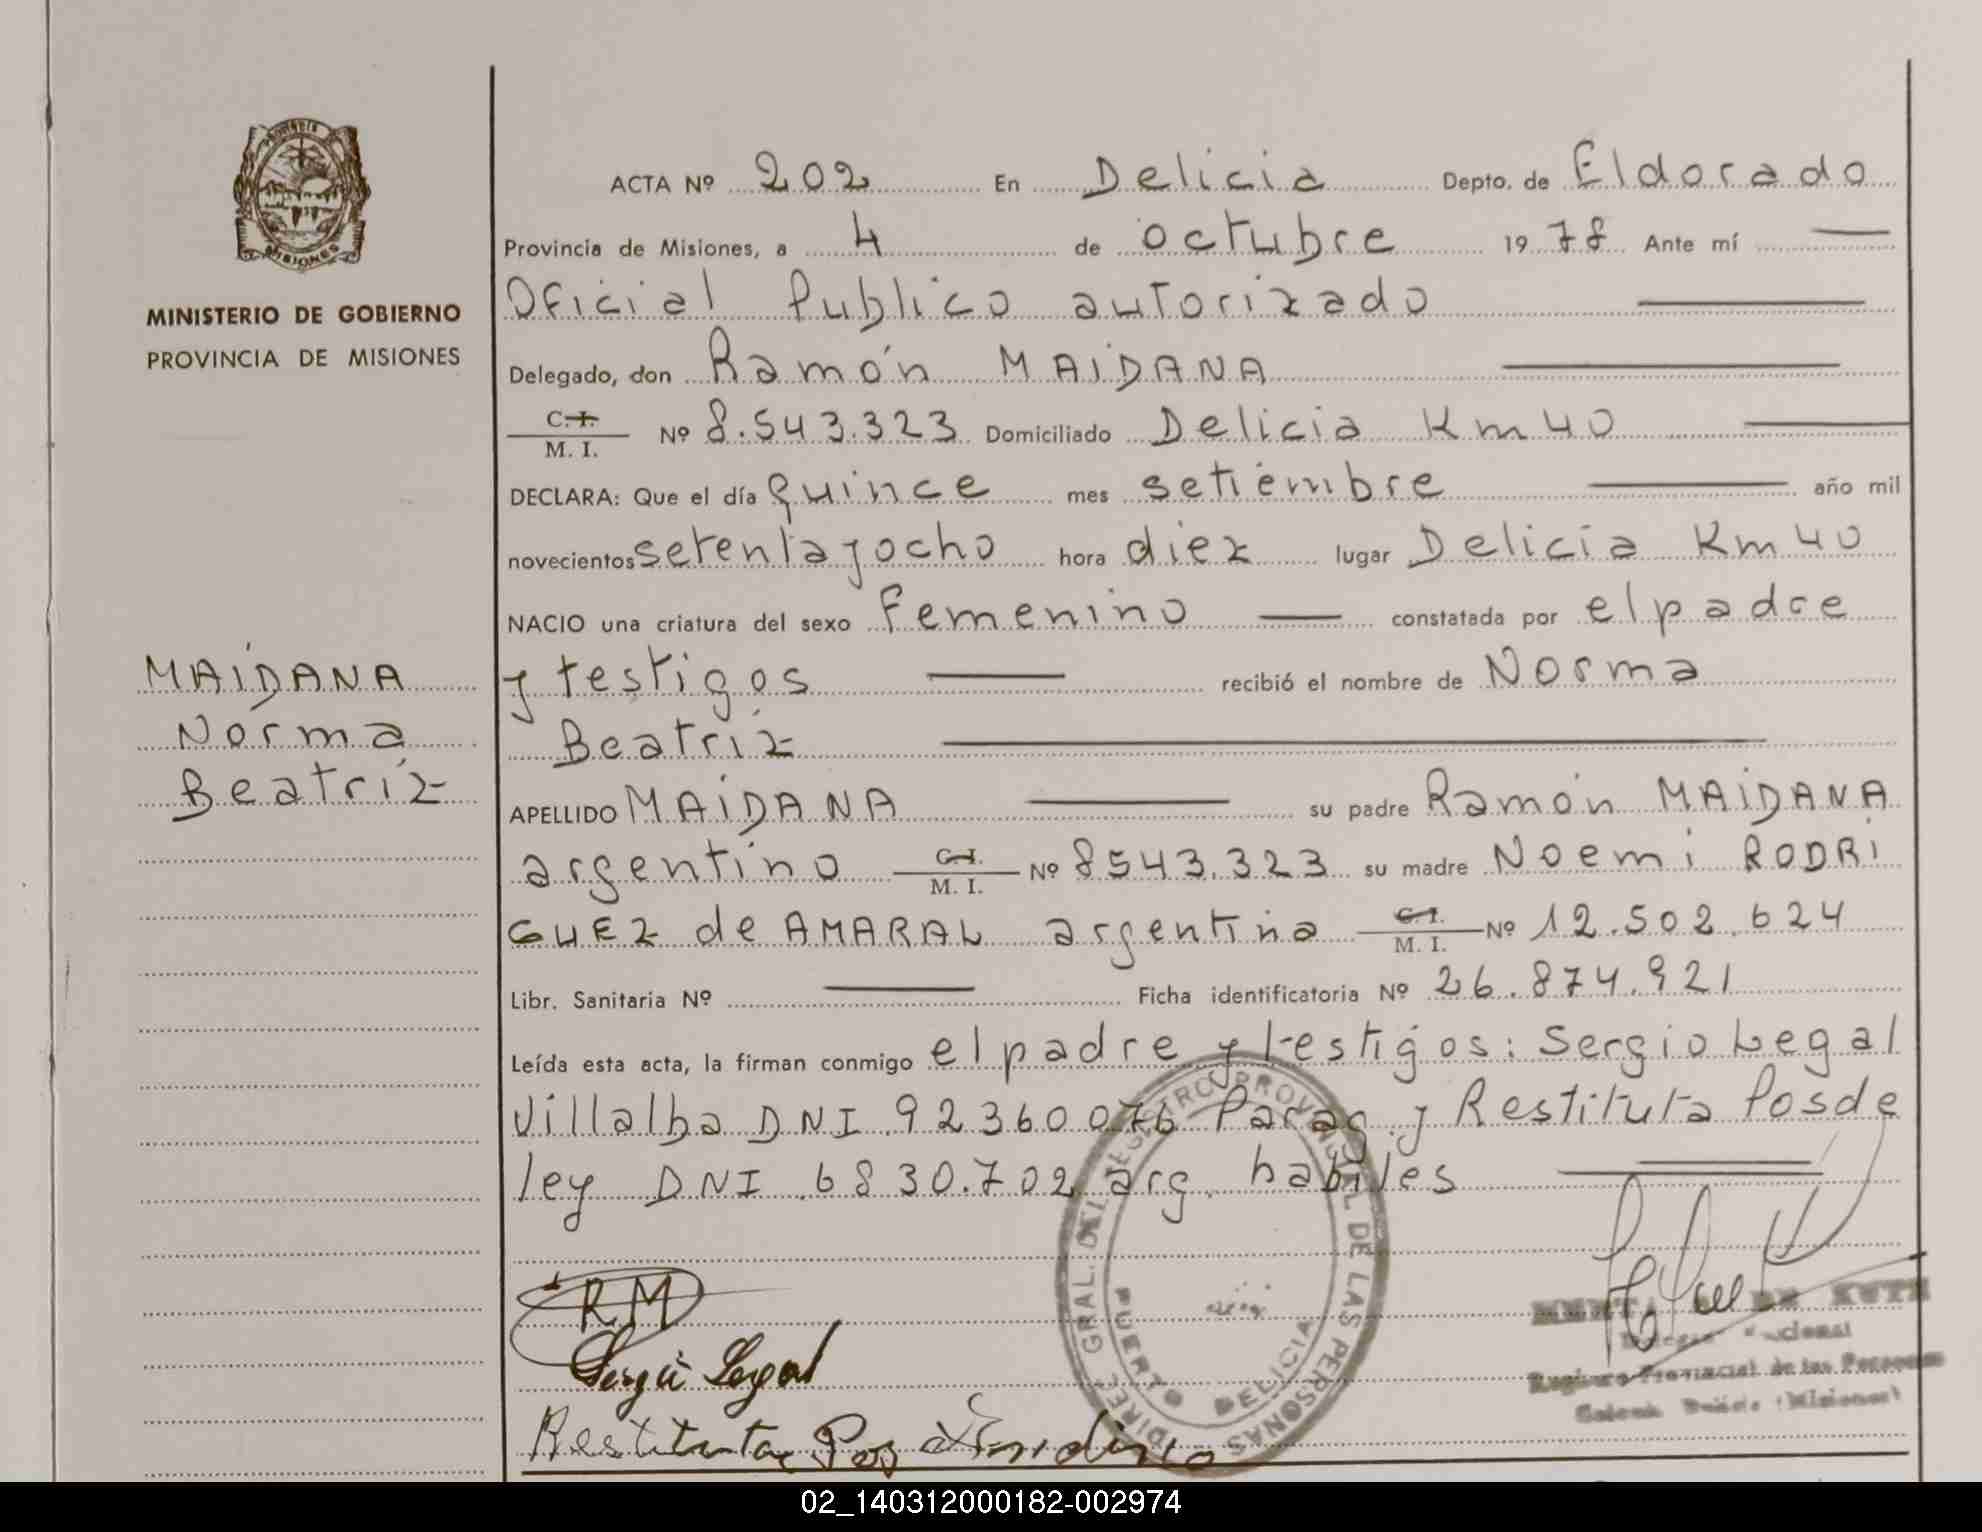 PROVINCIA
MISIONES
MINISTERIO DE GOBIERNO
PROVINCIA DE MISIONES
MAIDANA
Norma
Beatriz
ACTA Nº 202 En Delicia Depto. de Eldorado
Provincia de Misiones, a 4 de octubre 19 78 Ante mí
Oficial Publico autorizado
Delegado, don Ramón MAIDANA
C. I.
M. I. Nº 8.543.323 Domiciliado Delicia Km 40
DECLARA: Que el día quince mes setiembre año mil
novecientos setenta y ocho hora diez lugar Delicia Km 40
NACIO una criatura del sexo Femenino constatada por el padre
y testigos recibió el nombre de Norma
Beatriz
APELLIDO MAIDANA su padre Ramón MAIDANA
argentino C. I. M. I. Nº 8543.323 su madre Noemi RODRI
GUEZ de AMARAL argentina C. I. M. I. Nº 12.502.624
Libr. Sanitaria Nº Ficha identificatoria Nº 26.874.921
Leída esta acta, la firman conmigo el padre y testigos: Sergio Legal
Villalba DNI 92360076 Parag. y Restituta Pos de
ley DNI 6830.702 arg. habiles
DIREC. GRAL. DEL REGISTRO PROVINCIAL DE LAS PERSONAS
PUERTO DELICIA
RM
Sergio Legal
Restituta Pos
Registro Provincial de las Personas
(Misiones)
02_140312000182-002974